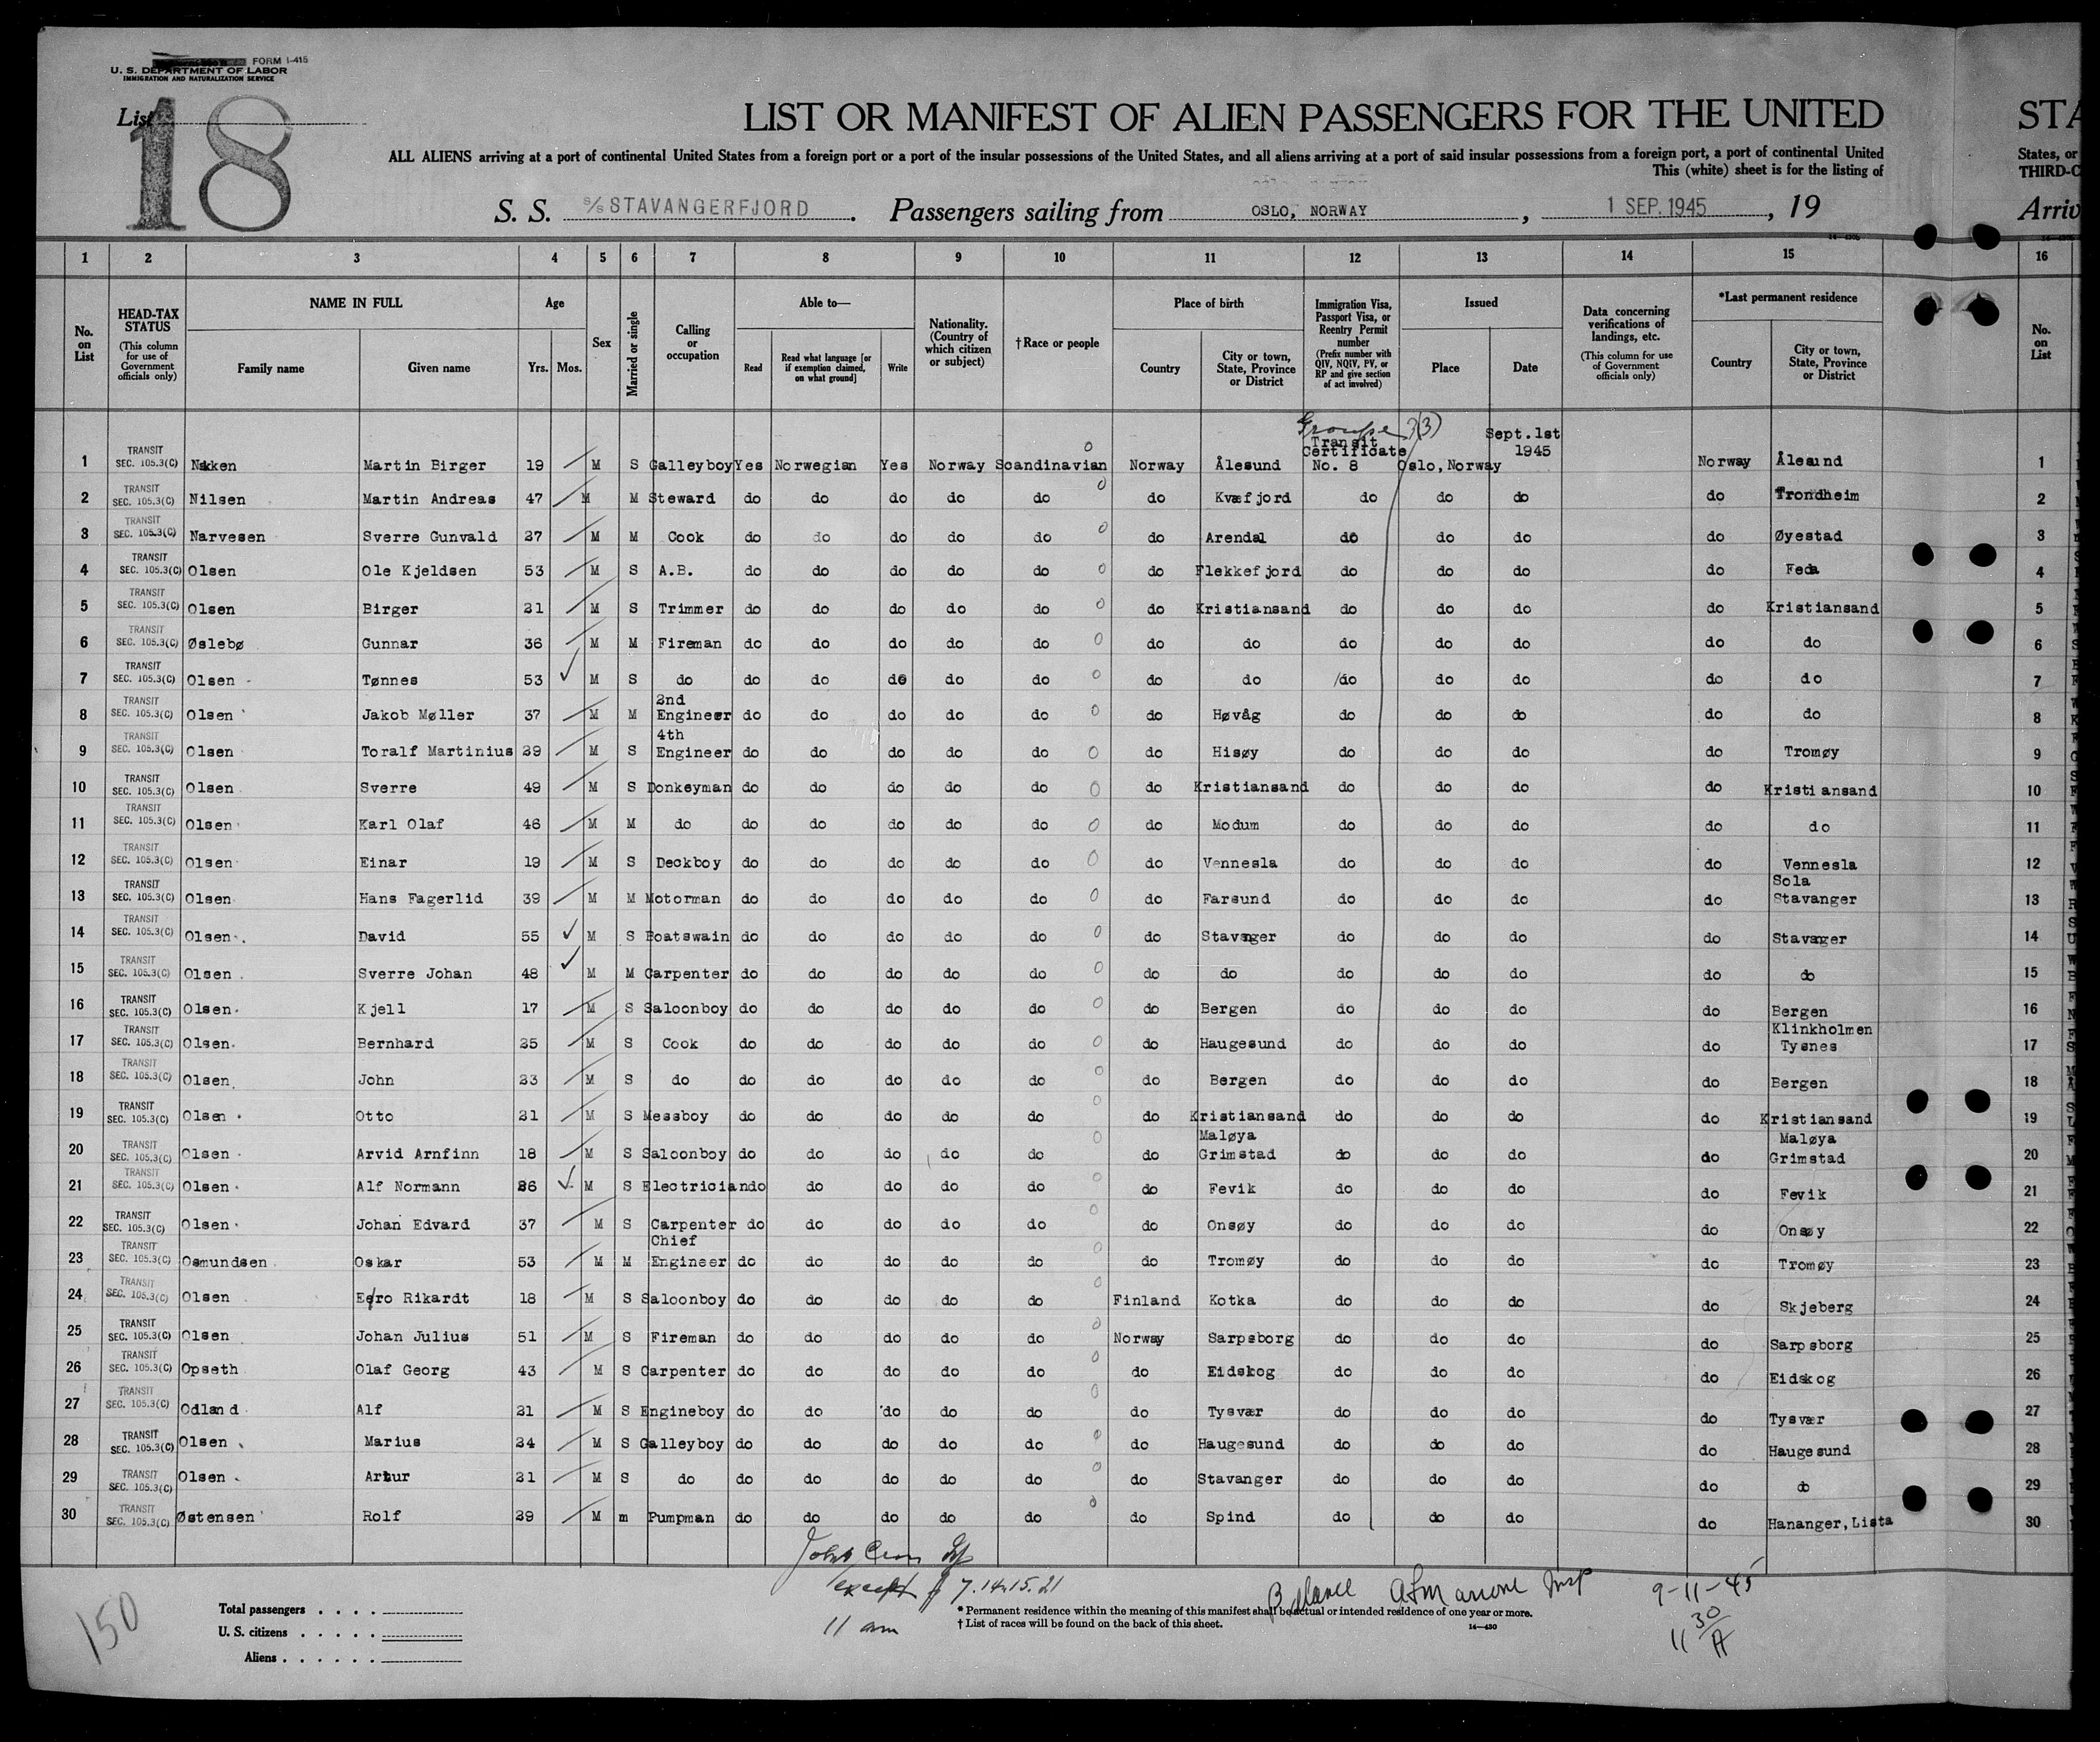 FORM I-415
U. S. DEPARTMENT OF LABOR
IMMIGRATION AND NATURALIZATION SERVICE
List 18
LIST OR MANIFEST OF ALIEN PASSENGERS FOR THE UNITED STA
ALL ALIENS arriving at a port of continental United States from a foreign port or a port of the insular possessions of the United States, and all aliens arriving at a port of said insular possessions from a foreign port, a port of continental United States, or
This (white) sheet is for the listing of THIRD-C
S. S. S/S STAVANGERFJORD. Passengers sailing from OSLO, NORWAY, 1 SEP. 1945, 19 Arriv
1 2 3 4 5 6 7 8 9 10 11 12 13 14 15 16
No. on List
HEAD-TAX STATUS (This column for use of Government officials only)
NAME IN FULL Family name Given name
Age Yrs. Mos.
Sex
Married or single
Calling or occupation
Able to— Read Read what language [or if exemption claimed, on what ground] Write
Nationality. (Country of which citizen or subject)
† Race or people
Place of birth Country City or town, State, Province or District
Immigration Visa, Passport Visa, or Reentry Permit number (Prefix number with QIV, NQIV, PV, or RP and give section of act involved)
Issued Place Date
Data concerning verifications of landings, etc. (This column for use of Government officials only)
*Last permanent residence Country City or town, State, Province or District
No. on List
Groupe 3(3)
1 TRANSIT SEC. 105.3(C) Nakken Martin Birger 19 M S Galleyboy Yes Norwegian Yes Norway Scandinavian Norway Ålesund Transit Certificate No. 8 Oslo, Norway Sept. 1st 1945 Norway Ålesund 1
2 TRANSIT SEC. 105.3(C) Nilsen Martin Andreas 47 M M Steward do do do do do do Kvæfjord do do do do Trondheim 2
3 TRANSIT SEC. 105.3(C) Narvesen Sverre Gunvald 27 M M Cook do do do do do do Arendal do do do do Øyestad 3
4 TRANSIT SEC. 105.3(C) Olsen Ole Kjeldsen 53 M S A.B. do do do do do do Flekkefjord do do do do Feda 4
5 TRANSIT SEC. 105.3(C) Olsen Birger 21 M S Trimmer do do do do do do Kristiansand do do do do Kristiansand 5
6 TRANSIT SEC. 105.3(C) Øslebø Gunnar 36 M M Fireman do do do do do do do do do do do do 6
7 TRANSIT SEC. 105.3(C) Olsen Tønnes 53 M S do do do do do do do do do do do do do 7
8 TRANSIT SEC. 105.3(C) Olsen Jakob Møller 37 M M 2nd Engineer do do do do do do Høvåg do do do do do 8
9 TRANSIT SEC. 105.3(C) Olsen Toralf Martinius 29 M S 4th Engineer do do do do do do Hisøy do do do do Tromøy 9
10 TRANSIT SEC. 105.3(C) Olsen Sverre 49 M S Donkeyman do do do do do do Kristiansand do do do do Kristiansand 10
11 TRANSIT SEC. 105.3(C) Olsen Karl Olaf 46 M M do do do do do do do Modum do do do do do 11
12 TRANSIT SEC. 105.3(C) Olsen Einar 19 M S Deckboy do do do do do do Vennesla do do do do Vennesla 12
13 TRANSIT SEC. 105.3(C) Olsen Hans Fagerlid 39 M M Motorman do do do do do do Farsund do do do do Sola Stavanger 13
14 TRANSIT SEC. 105.3(C) Olsen David 55 M S Boatswain do do do do do do Stavanger do do do do Stavanger 14
15 TRANSIT SEC. 105.3(C) Olsen Sverre Johan 48 M M Carpenter do do do do do do do do do do do do 15
16 TRANSIT SEC. 105.3(C) Olsen Kjell 17 M S Saloonboy do do do do do do Bergen do do do do Bergen 16
17 TRANSIT SEC. 105.3(C) Olsen Bernhard 25 M S Cook do do do do do do Haugesund do do do do Klinkholmen Tysnes 17
18 TRANSIT SEC. 105.3(C) Olsen John 23 M S do do do do do do do Bergen do do do do Bergen 18
19 TRANSIT SEC. 105.3(C) Olsen Otto 21 M S Messboy do do do do do do Kristiansand do do do do Kristiansand 19
20 TRANSIT SEC. 105.3(C) Olsen Arvid Arnfinn 18 M S Saloonboy do do do do do do Maløya Grimstad do do do do Maløya Grimstad 20
21 TRANSIT SEC. 105.3(C) Olsen Alf Normann 26 M S Electrician do do do do do do Fevik do do do do Fevik 21
22 TRANSIT SEC. 105.3(C) Olsen Johan Edvard 37 M S Carpenter do do do do do do Onsøy do do do do Onsøy 22
23 TRANSIT SEC. 105.3(C) Osmundsen Oskar 53 M M Chief Engineer do do do do do do Tromøy do do do do Tromøy 23
24 TRANSIT SEC. 105.3(C) Olsen Eero Rikardt 18 M S Saloonboy do do do do do Finland Kotka do do do do Skjeberg 24
25 TRANSIT SEC. 105.3(C) Olsen Johan Julius 51 M S Fireman do do do do do Norway Sarpsborg do do do do Sarpsborg 25
26 TRANSIT SEC. 105.3(C) Opseth Olaf Georg 43 M S Carpenter do do do do do do Eidskog do do do do Eidskog 26
27 TRANSIT SEC. 105.3(C) Odland Alf 21 M S Engineboy do do do do do do Tysvær do do do do Tysvær 27
28 TRANSIT SEC. 105.3(C) Olsen Marius 24 M S Galleyboy do do do do do do Haugesund do do do do Haugesund 28
29 TRANSIT SEC. 105.3(C) Olsen Artur 21 M S do do do do do do do Stavanger do do do do do 29
30 TRANSIT SEC. 105.3(C) Østensen Rolf 29 M m Pumpman do do do do do do Spind do do do do Hananger, Lista 30
except # 7.14.15.21
11 am
Balance
9-11-45
11 30/A
150
Total passengers
U. S. citizens
Aliens
* Permanent residence within the meaning of this manifest shall be actual or intended residence of one year or more.
† List of races will be found on the back of this sheet.
14—430